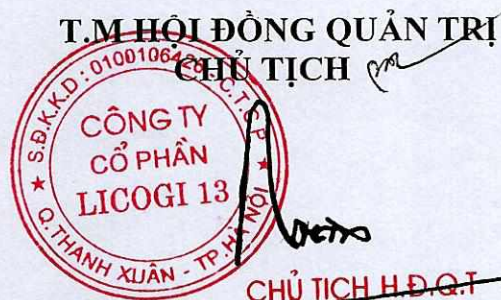 T.M HỘI ĐỒNG QUẢN TRỊ
CHỦ TỊCH
S.Đ.K.K.D: 0100106426 C.T.C.P
CÔNG TY
CỔ PHẦN
LICOGI 13
Q.THANH XUÂN - TP.HÀ NỘI
CHỦ TỊCH H.Đ.Q.T